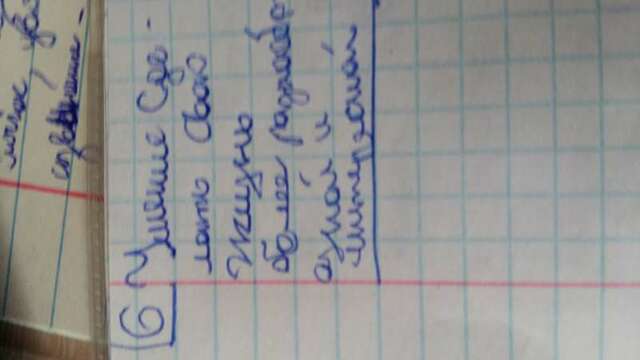 6 Умение Сде-
лать Свою
Жизнь
более разнообр
азной и
интересной